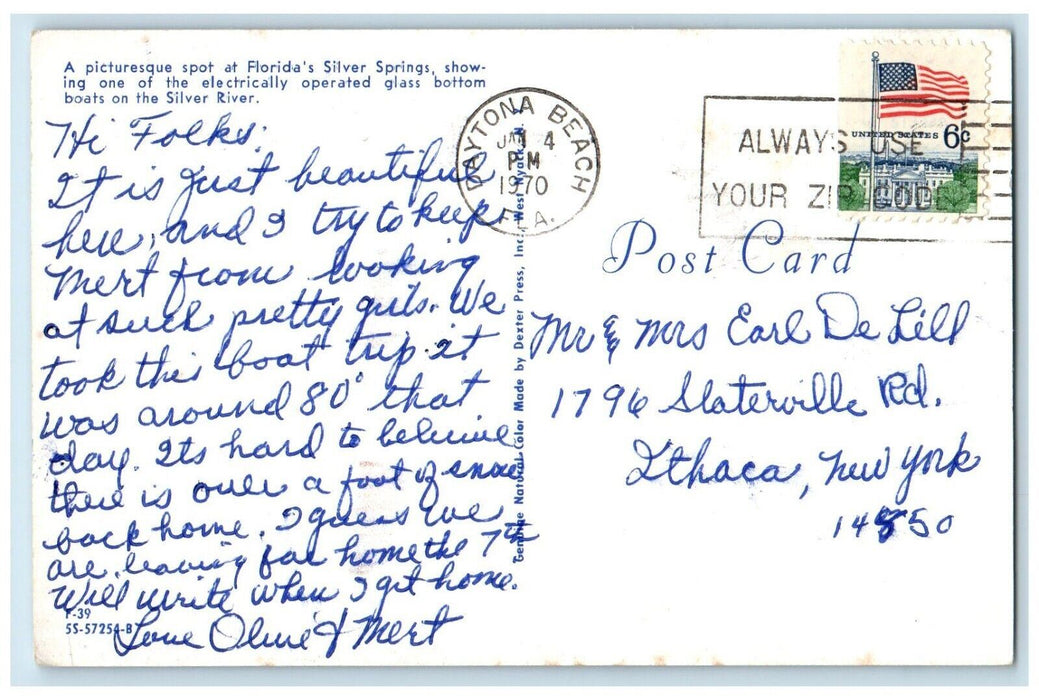 A picturesque spot at Florida's Silver Springs, show-
ing one of the electrically operated glass bottom
boats on the Silver River.
Hi Folks:
It is just beautiful
here, and I try to keep
Mert from looking
at such pretty girls. We
took this boat trip it
was around 80° that
day. Its hard to beleive
there is over a foot of snow
back home. I guess we
are leaving for home the 7th
Will write when I get home.
Love Olive & Mert
F-39
5S-57254-B
Genuine Natural Color Made by Dexter Press, Inc. West Nyack, N.
DAYTONA BEACH
JAN 4
PM
1970
FLA.
ALWAYS USE
YOUR ZIP CODE
UNITED STATES 6c
Post Card
Mr & Mrs Earl De Lill
1796 Slaterville Rd.
Ithaca, New York
14850